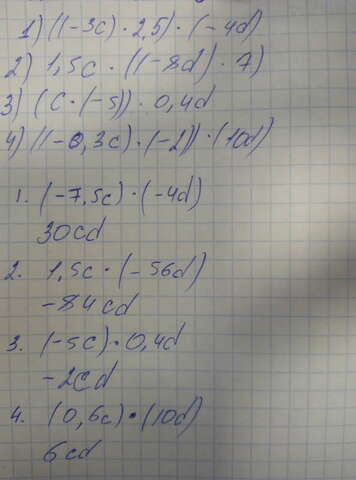 1) ((-3c) · 2,5) · (-4d)
2) 1,5c · ((-8d) · 7)
3) (c · (-5)) · 0,4d
4) ((-0,3c) · (-2)) · (10d)
1. (-7,5c) · (-4d)
30cd
2. 1,5c · (-56d)
-84cd
3. (-5c) · 0,4d
-2cd
4. (0,6c) · (10d)
6cd